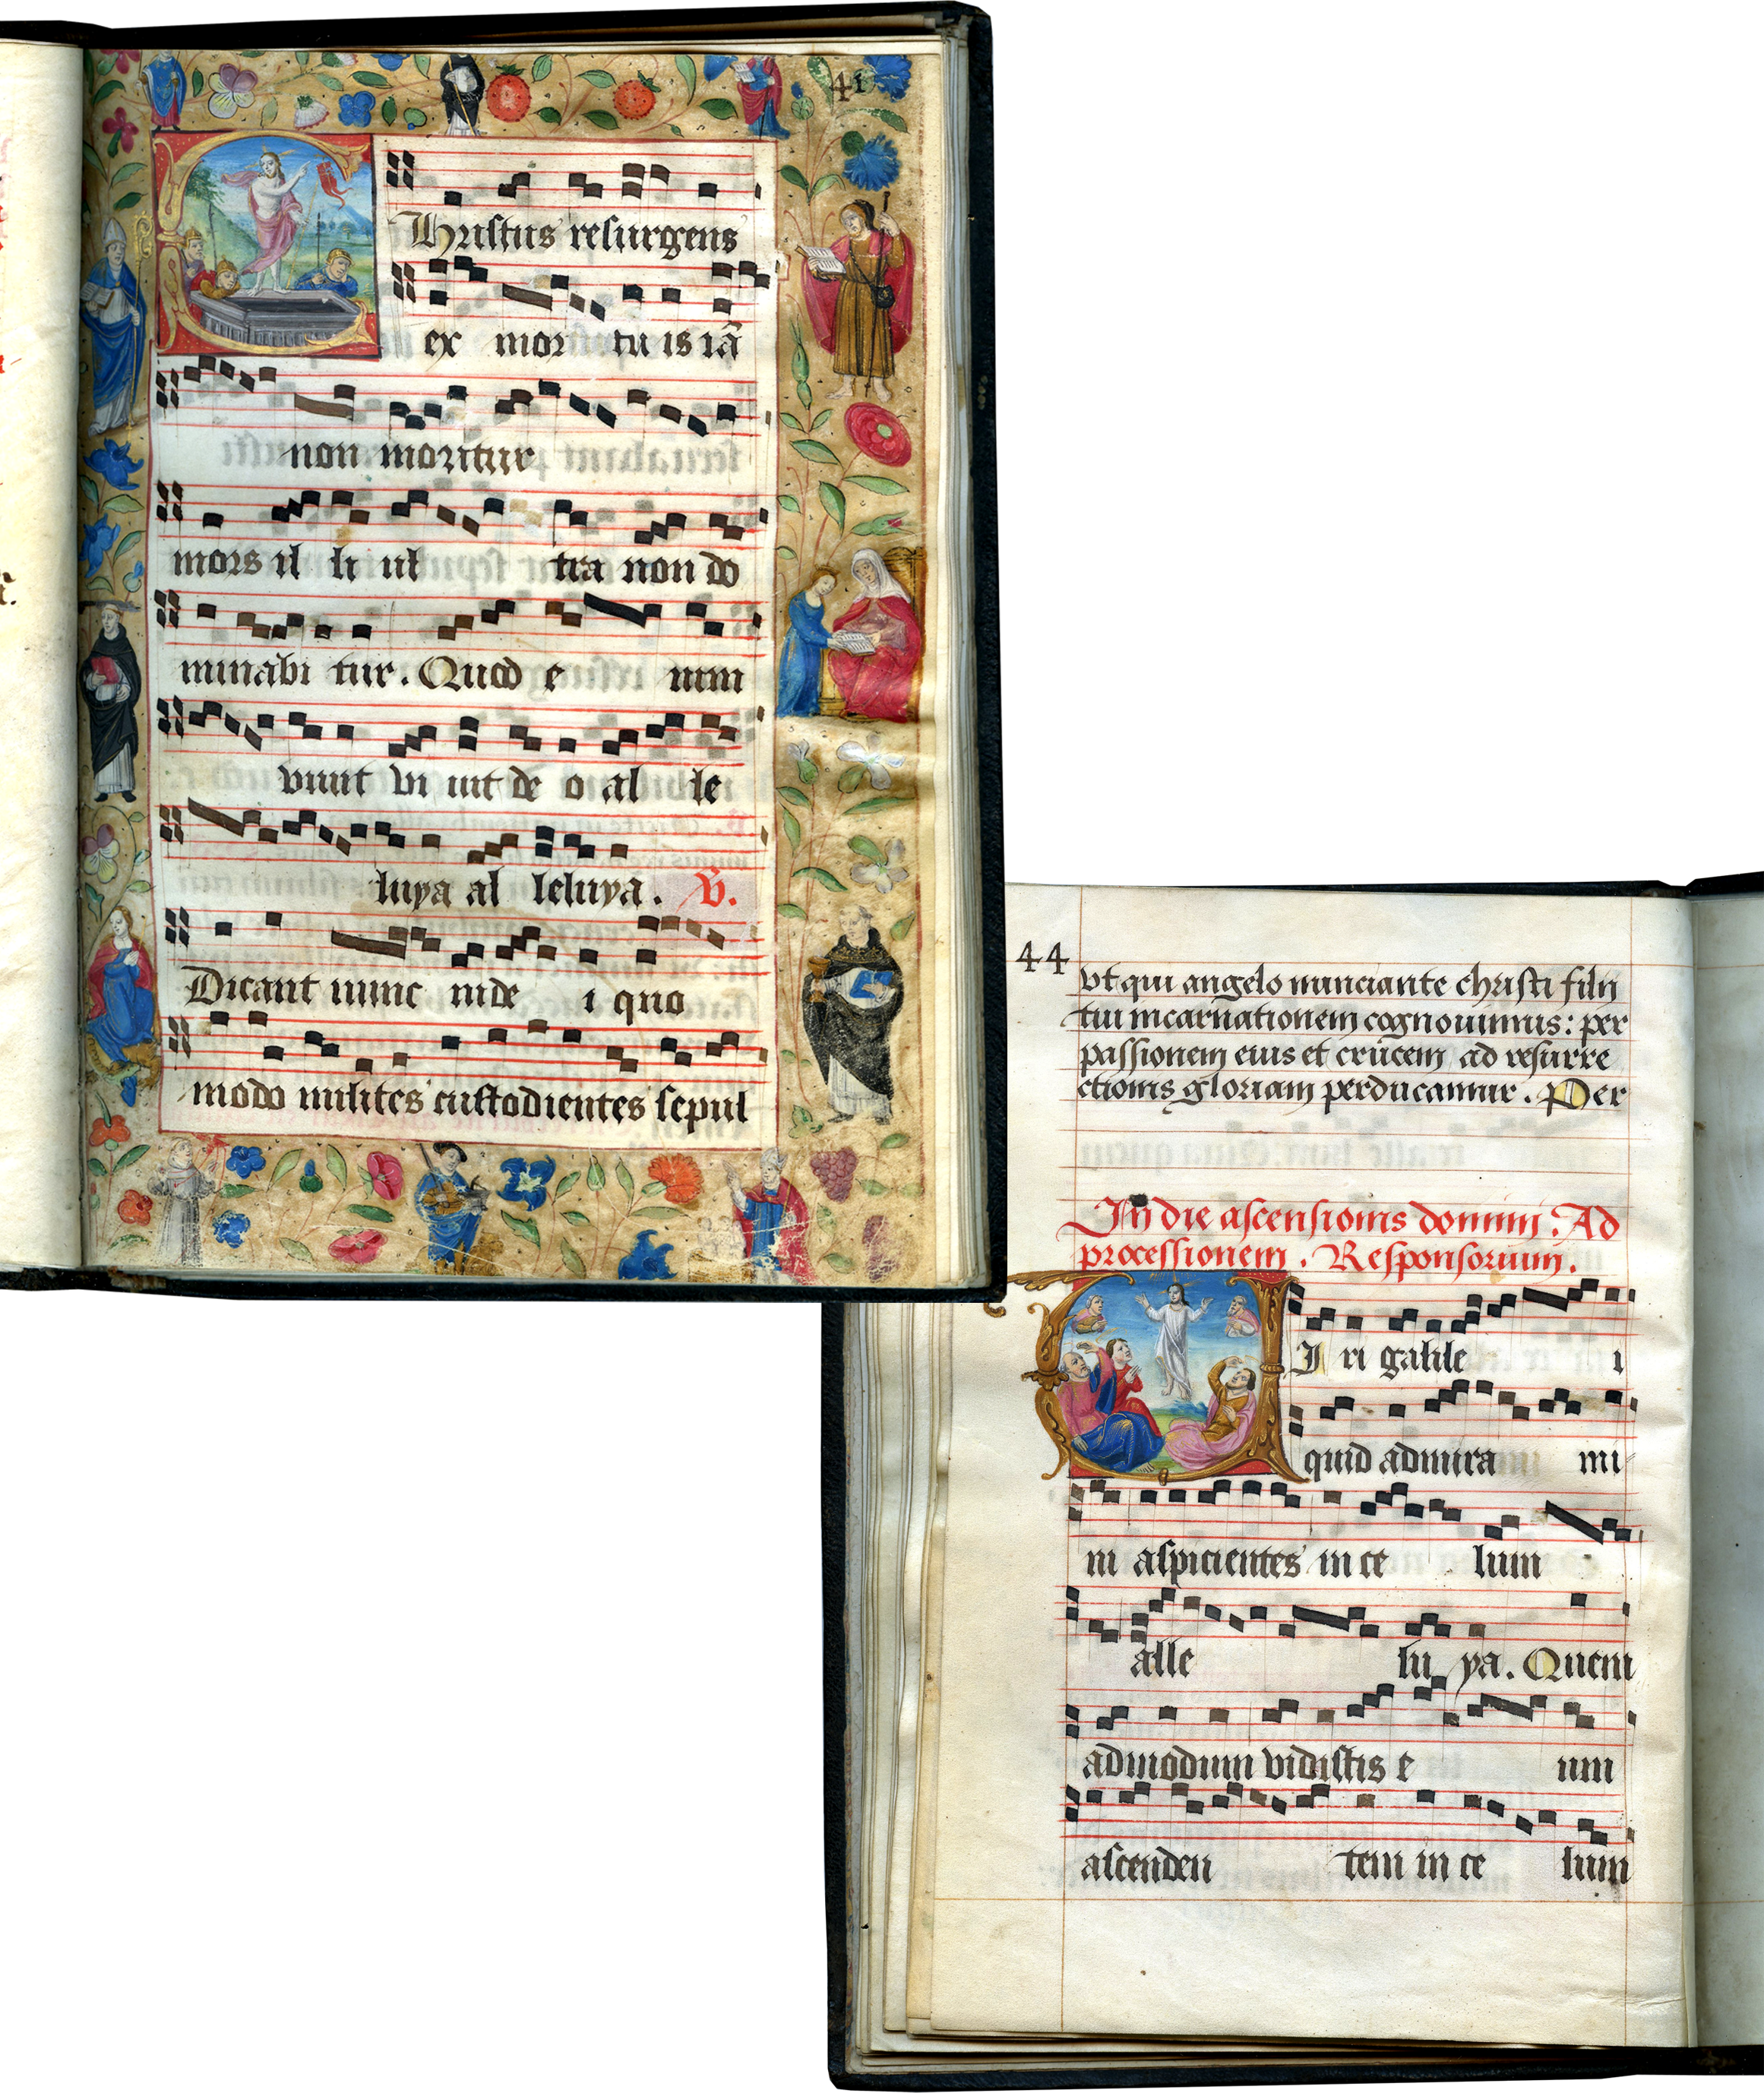 41
Christus resurgens
ex mor tu is iã
non moritur
mors il li ul tra non do
minabi tur. Quod e nim
viuit vi uit de o al le
luya al leluya. V.
Dicant nunc iude i quo
modo milites custodientes sepul
44
vt qui angelo nunciante christi filij
tui incarnationem cognouimus: per
passionem eius et crucem ad resurre
ctionis gloriam perducamur. Per
In die ascensionis domini. Ad
processionem. Responsorium.
VJ ri galile i
quid admira mi
ni aspicientes in ce lum
alle lu ya. Quem
admodum vidistis e um
ascenden tem in ce lum